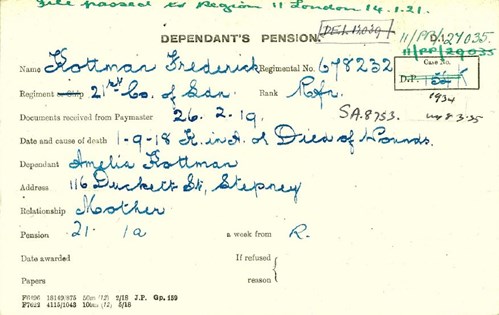 File passed to Region 11 London 14.1.21.
DEPENDANT'S PENSION.
11/PP/27035.
11/PP/29035
Name Kottman Frederick Regimental No. 678232
Case No.
D.P.
Regiment 21st Co. of Ldn. Rank Rfn.
1934
Documents received from Paymaster 26.2.19.
SA.8753.
Date and cause of death 1-9-18 K. in A. or Died of Wounds.
Dependant Amelia Kottman
Address 116 Duckett St, Stepney
Relationship Mother
Pension 21. 1a a week from R.
Date awarded If refused
Papers reason
F6896 18149/875 50m (12) 2/18 J.P. Gp. 159
F7622 4115/1043 100m (12) 5/18